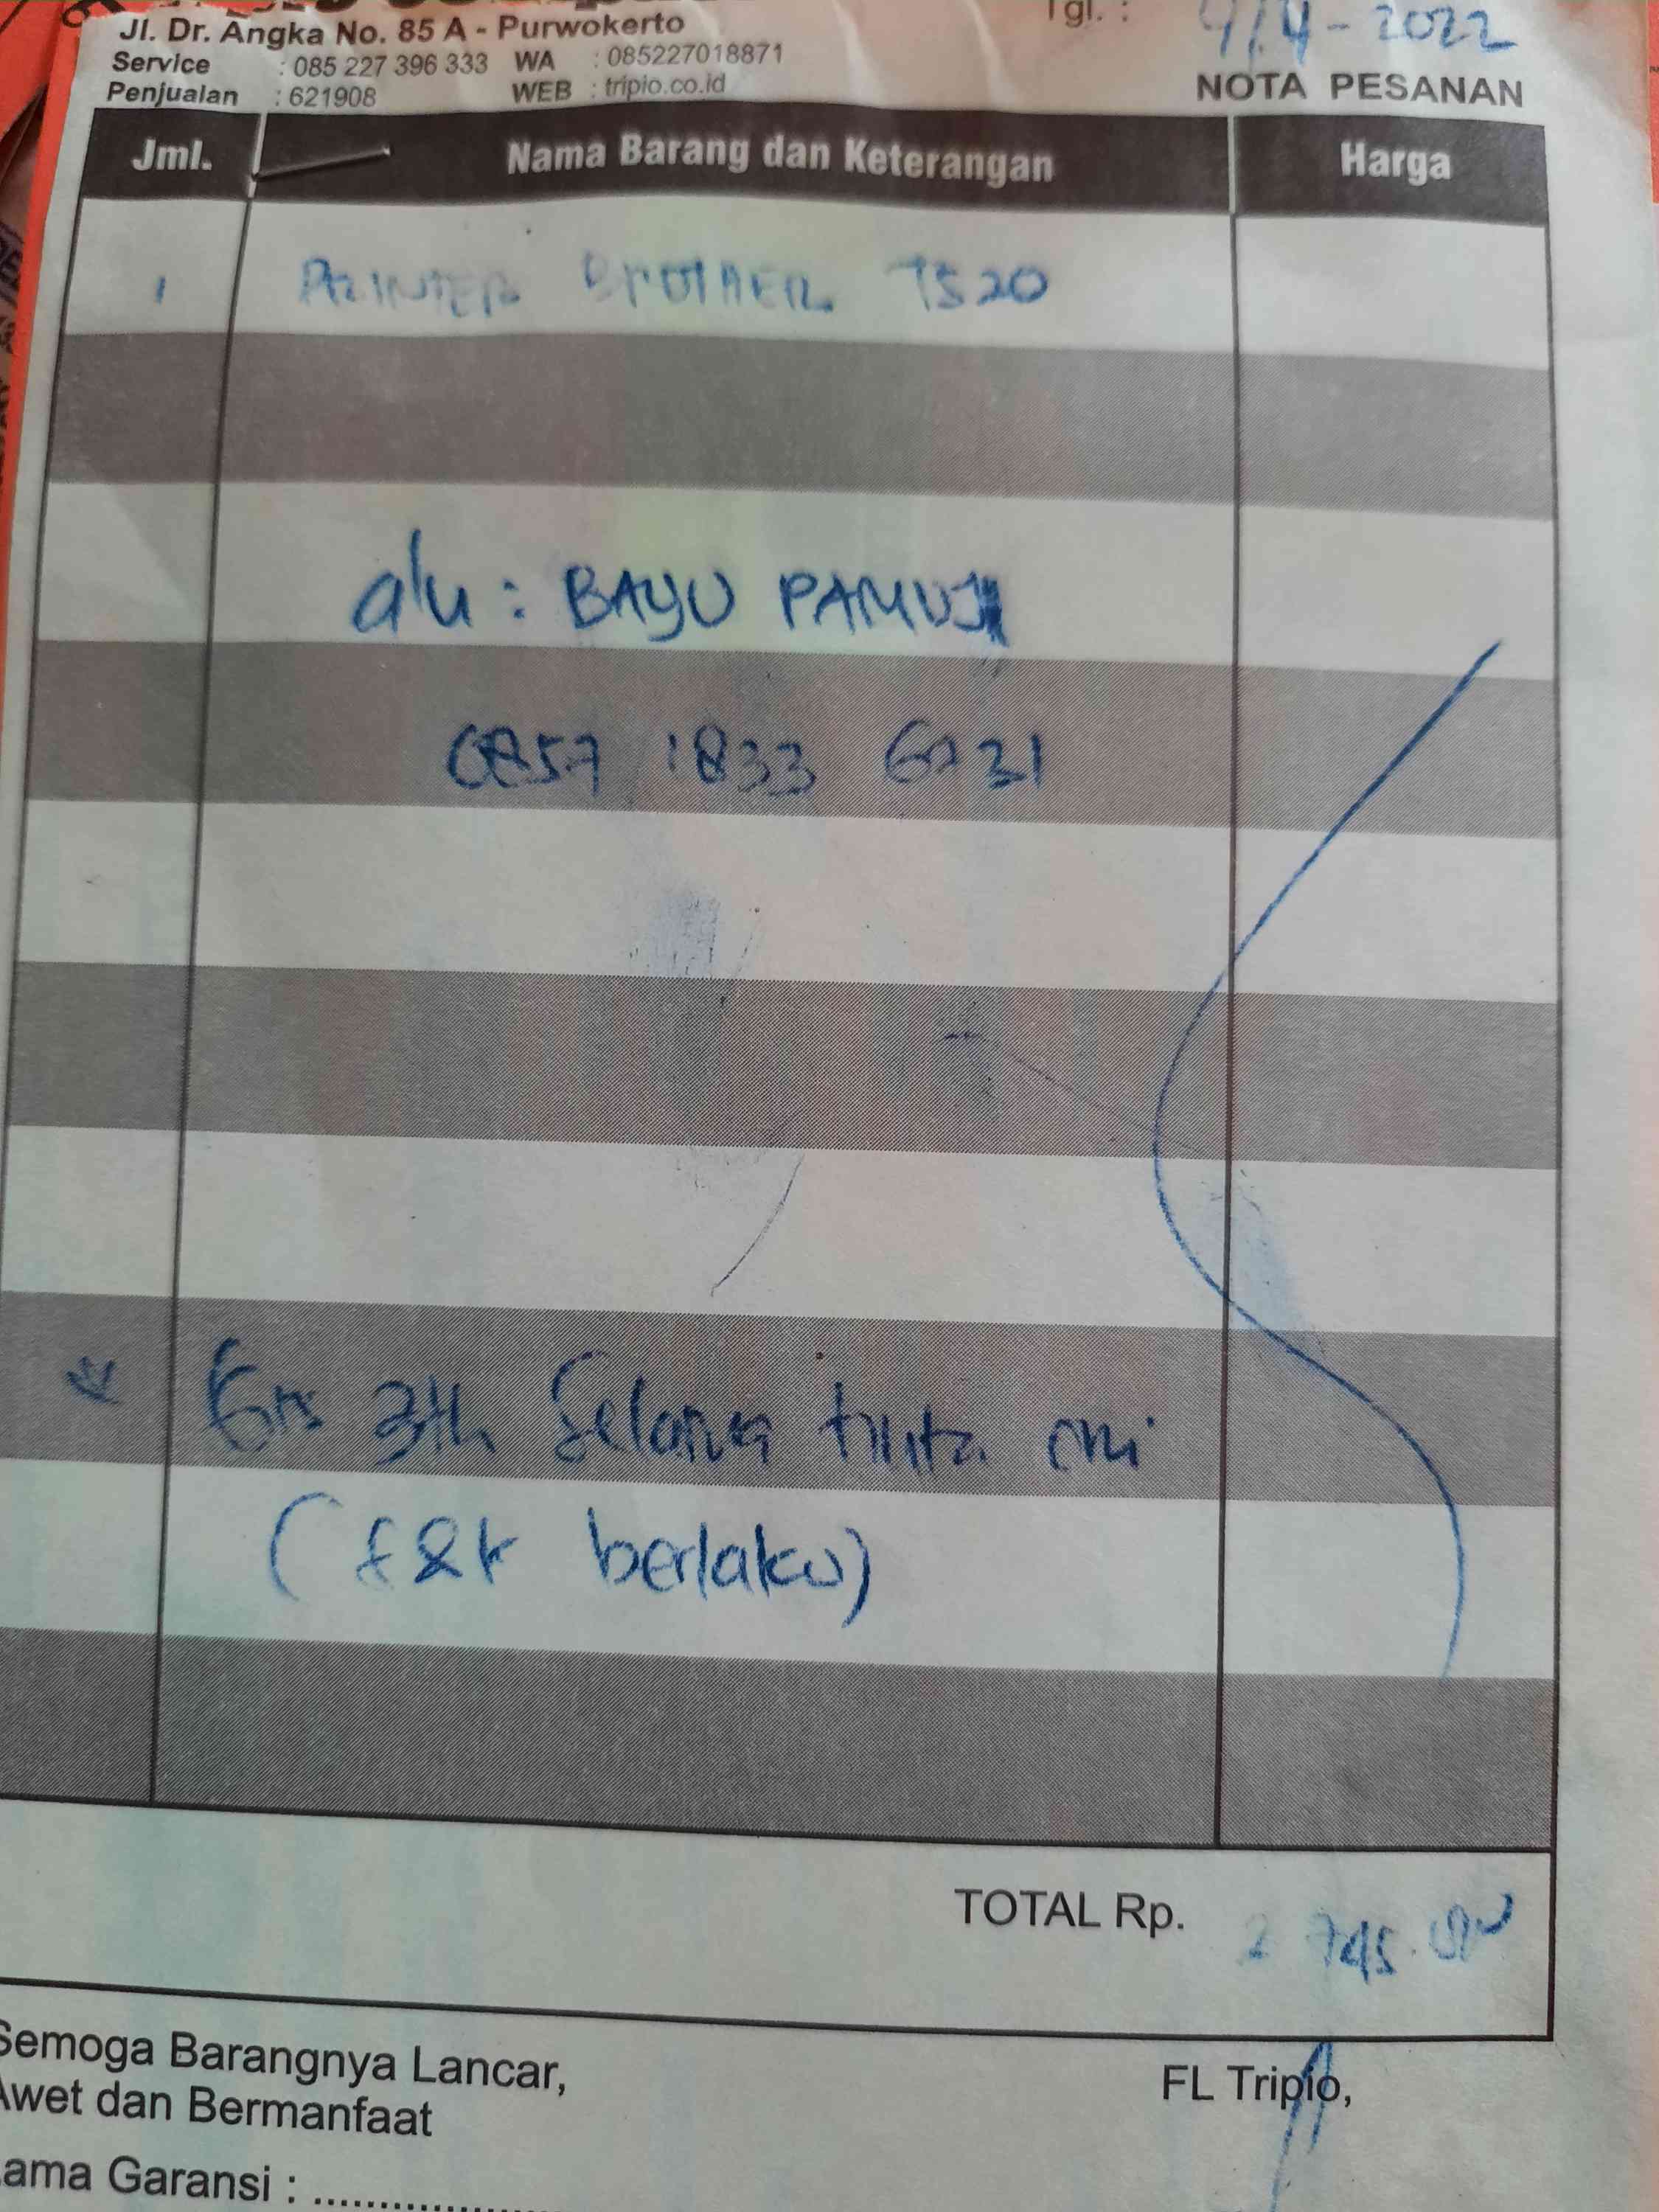 Jl. Dr. Angka No. 85 A - Purwokerto
Service : 085 227 396 333 WA : 085227018871
Penjualan : 621908 WEB : tripio.co.id
Tgl. : 4-2022
NOTA PESANAN
Jml. Nama Barang dan Keterangan Harga
1 PRINTER BROTHER T520
a/n : BAYU PAMUJI
0857 1833 6031
Grs 3th Selang tinta
(S&K berlaku)
TOTAL Rp. 2 745.000
Semoga Barangnya Lancar,
Awet dan Bermanfaat
FL Tripio,
Lama Garansi : ....................